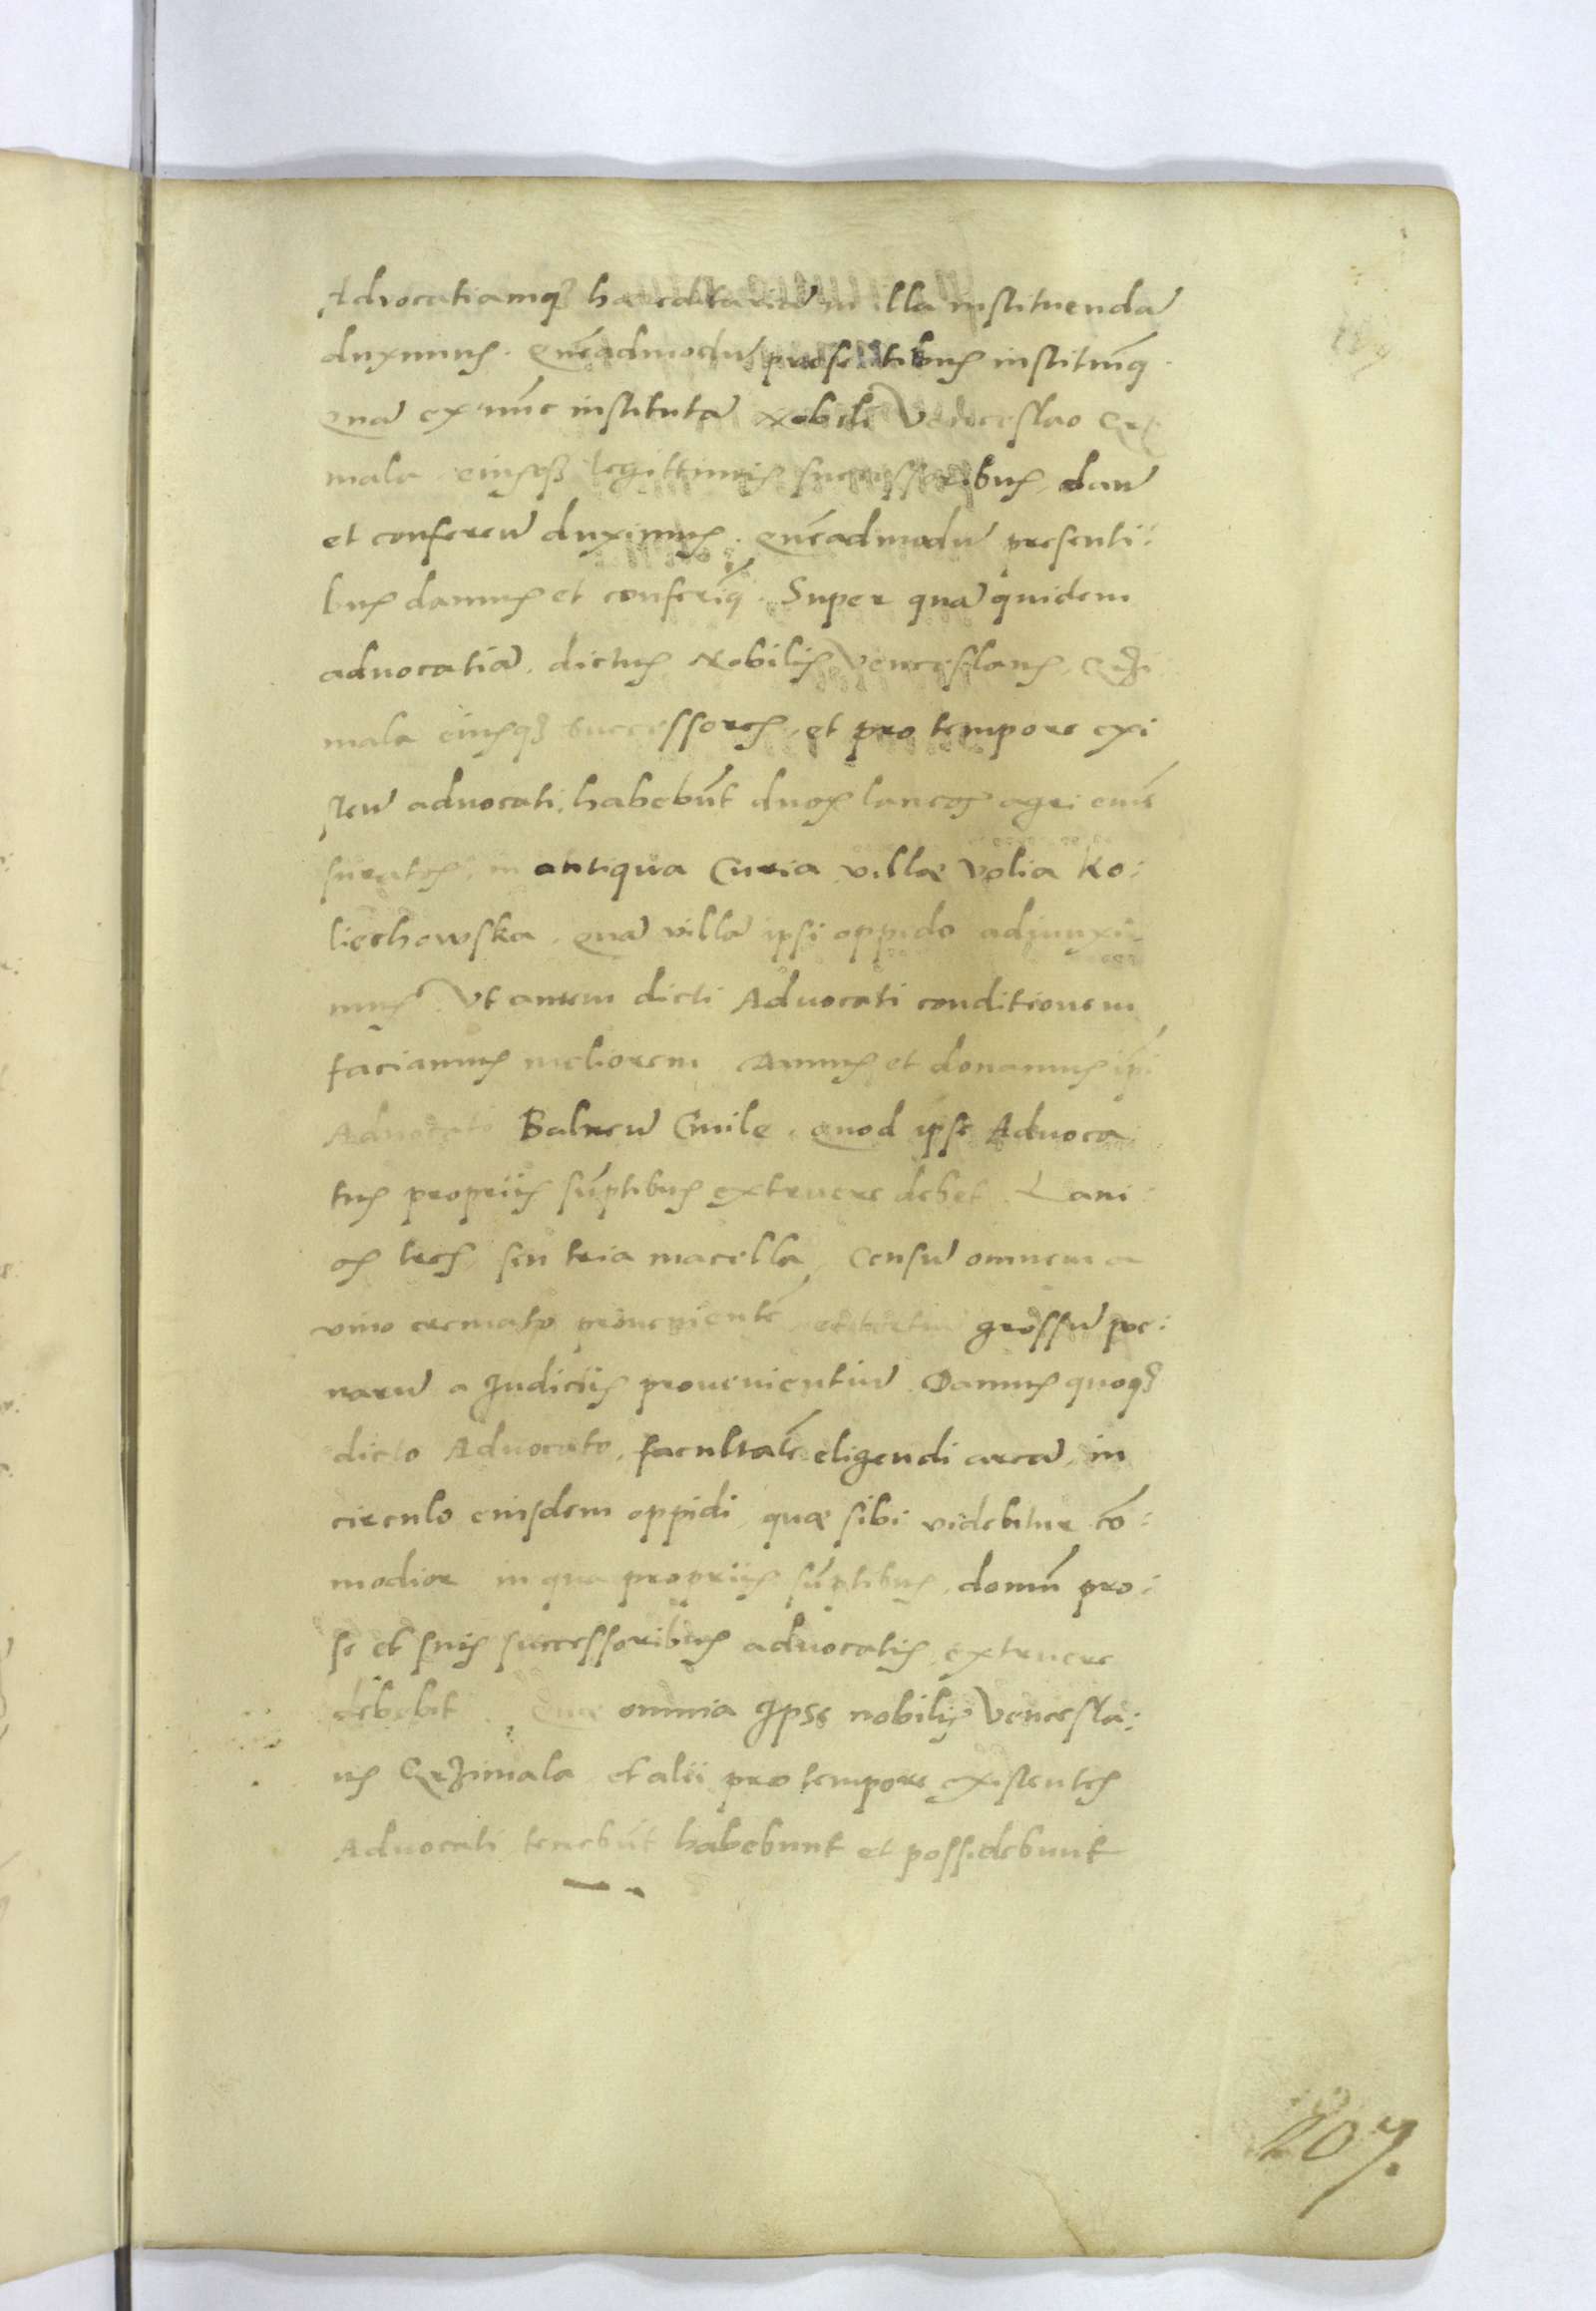 Advocatiamq₃ haereditariā in illa instituendā
duximus. Quēadmodū praesentibus instituim̄q.
Quā ex nūc institutā Nobili Venceslao Crzi
mala eiusq₃ legittimis successoribus, danū
et conferenū duximus. Quēadmodū presenti:
bus damus et conferim̄q. Super quā quidem
advocatiā, dictus Nobilis Venceslaus, Crzi
mala eiusq₃ successores, et pro tempore exi
steñ advocati, habebūt duos laneos agri emē
suratos, in antiqua Curia villae Volia Ko:
liechowska, quā villā ipsi oppido adjunxi
mus. Vt autem dicti Advocati conditionem
faciamus meliorem Damus et donamus ip̄i
Advocato Balneū Ciuile, quod ipse Aduoca
tus propriis sūptibus extruere debet. Lani:
os tres, seu tria macella, Censū omnem a
vino cremato prouenientē et tertiū grossū poe:
narū a Judiciis prouenientiū. Damus quoq₃
dicto Advocato, facultatē eligendi areā, in
circulo eiusdem oppidi, quae sibi videbitur cō:
modior in qua propriis sūptibus, domū pro:
se et suis successoribus advocatis, extruere
debebit. Quae omnia Ipse nobilis Vencesla:
us Crzimala et alii pro tempore existentes
Advocati tenebūt habebunt et possidebunt
207.